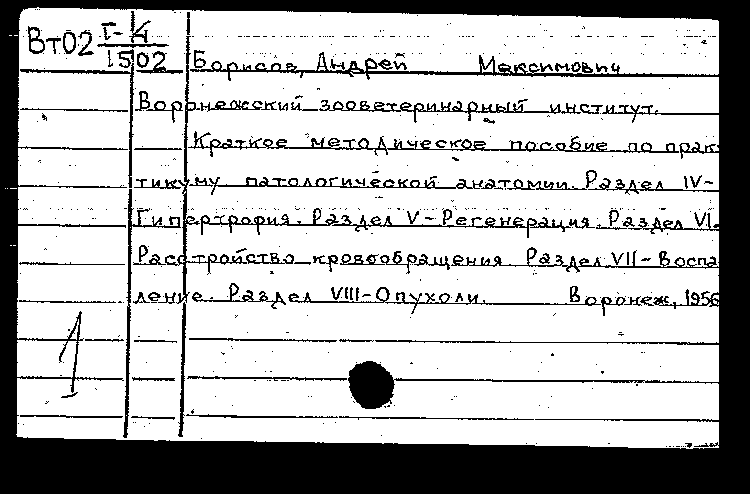 Вт02 I-4
1502 Борисов, Андрей Максимович
Воронежский зооветеринарный институт.
Краткое методическое пособие по прак
тикуму патологической анатомии. Раздел IV-
Гипертрофия. Раздел V-Регенерация. Раздел VI-
Расстройство кровообращения. Раздел VII-Воспа
ление. Раздел VIII-Опухоли. Воронеж, 1956
1